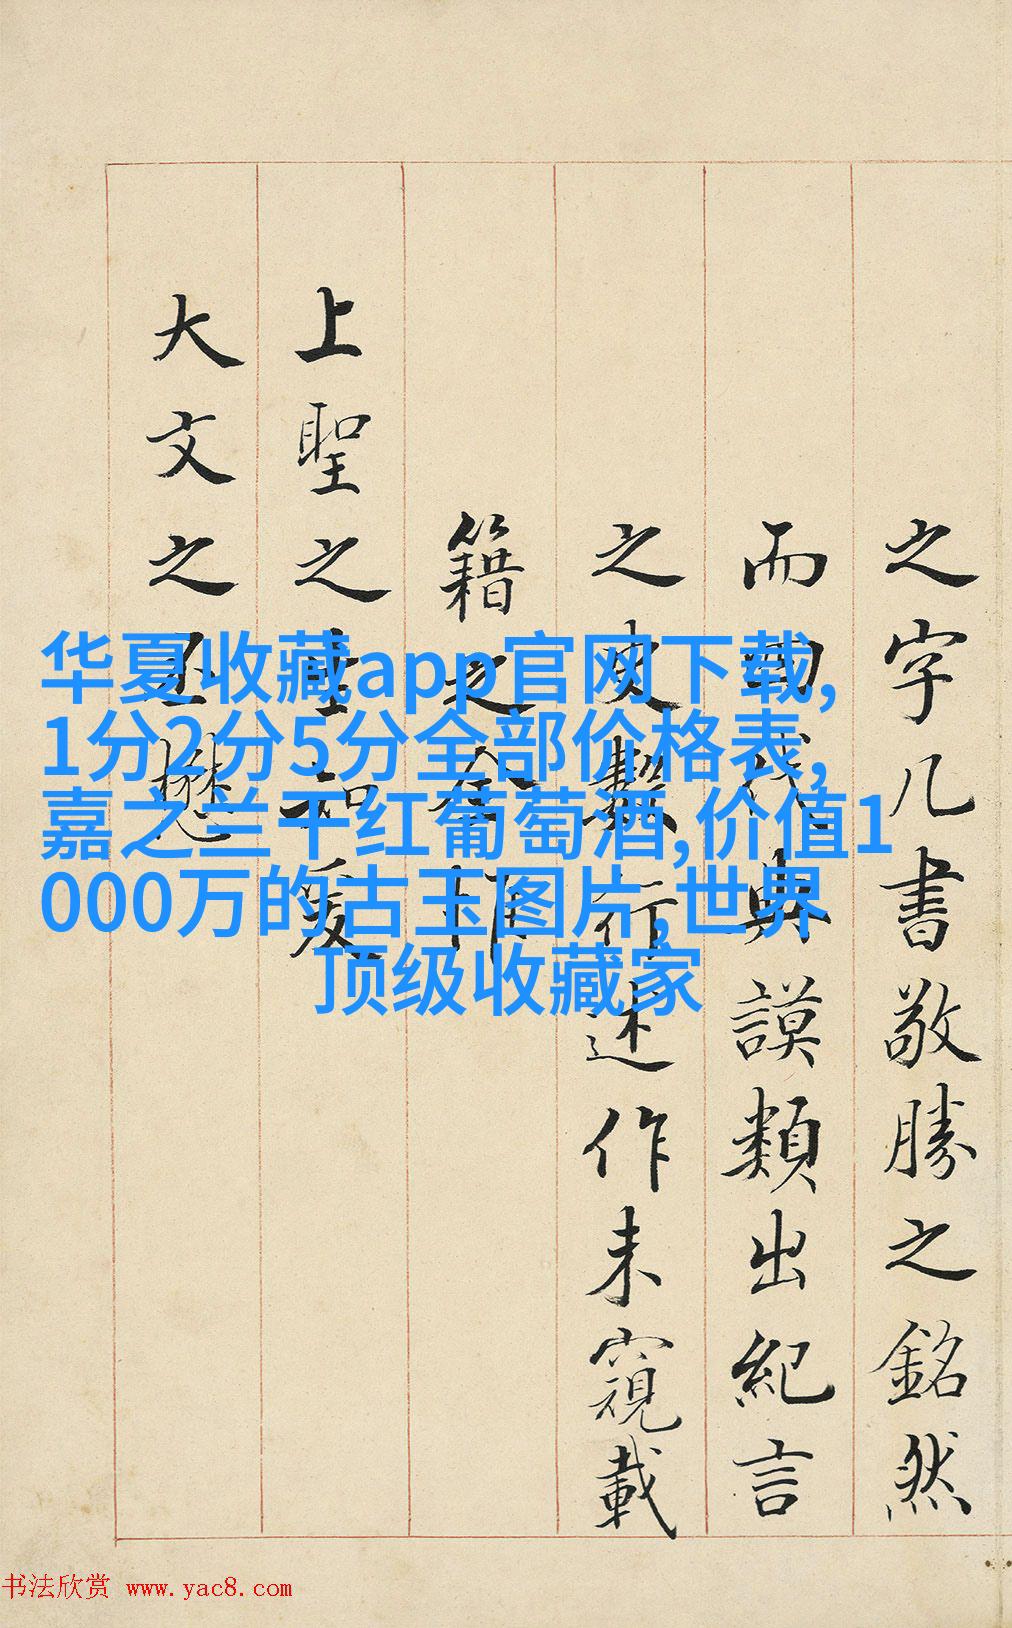 华夏收藏app官网下载,
1分2分5分全部价格表,
嘉之兰干红葡萄酒,价值1
000万的古玉图片,世界
顶级收藏家
之字几書敬勝之銘然
而典謨類出紀言
之史行述作未窺載
籍之
上聖之
大文之丕懋
书法欣赏 www.yac8.com